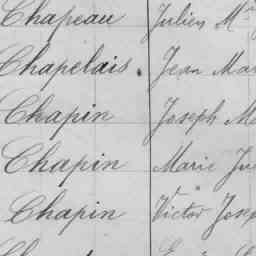 Chapeau Julien M
Chapelais Jean Mar
Chapin Joseph M
Chapin Marie Ju
Chapin Victor Josep